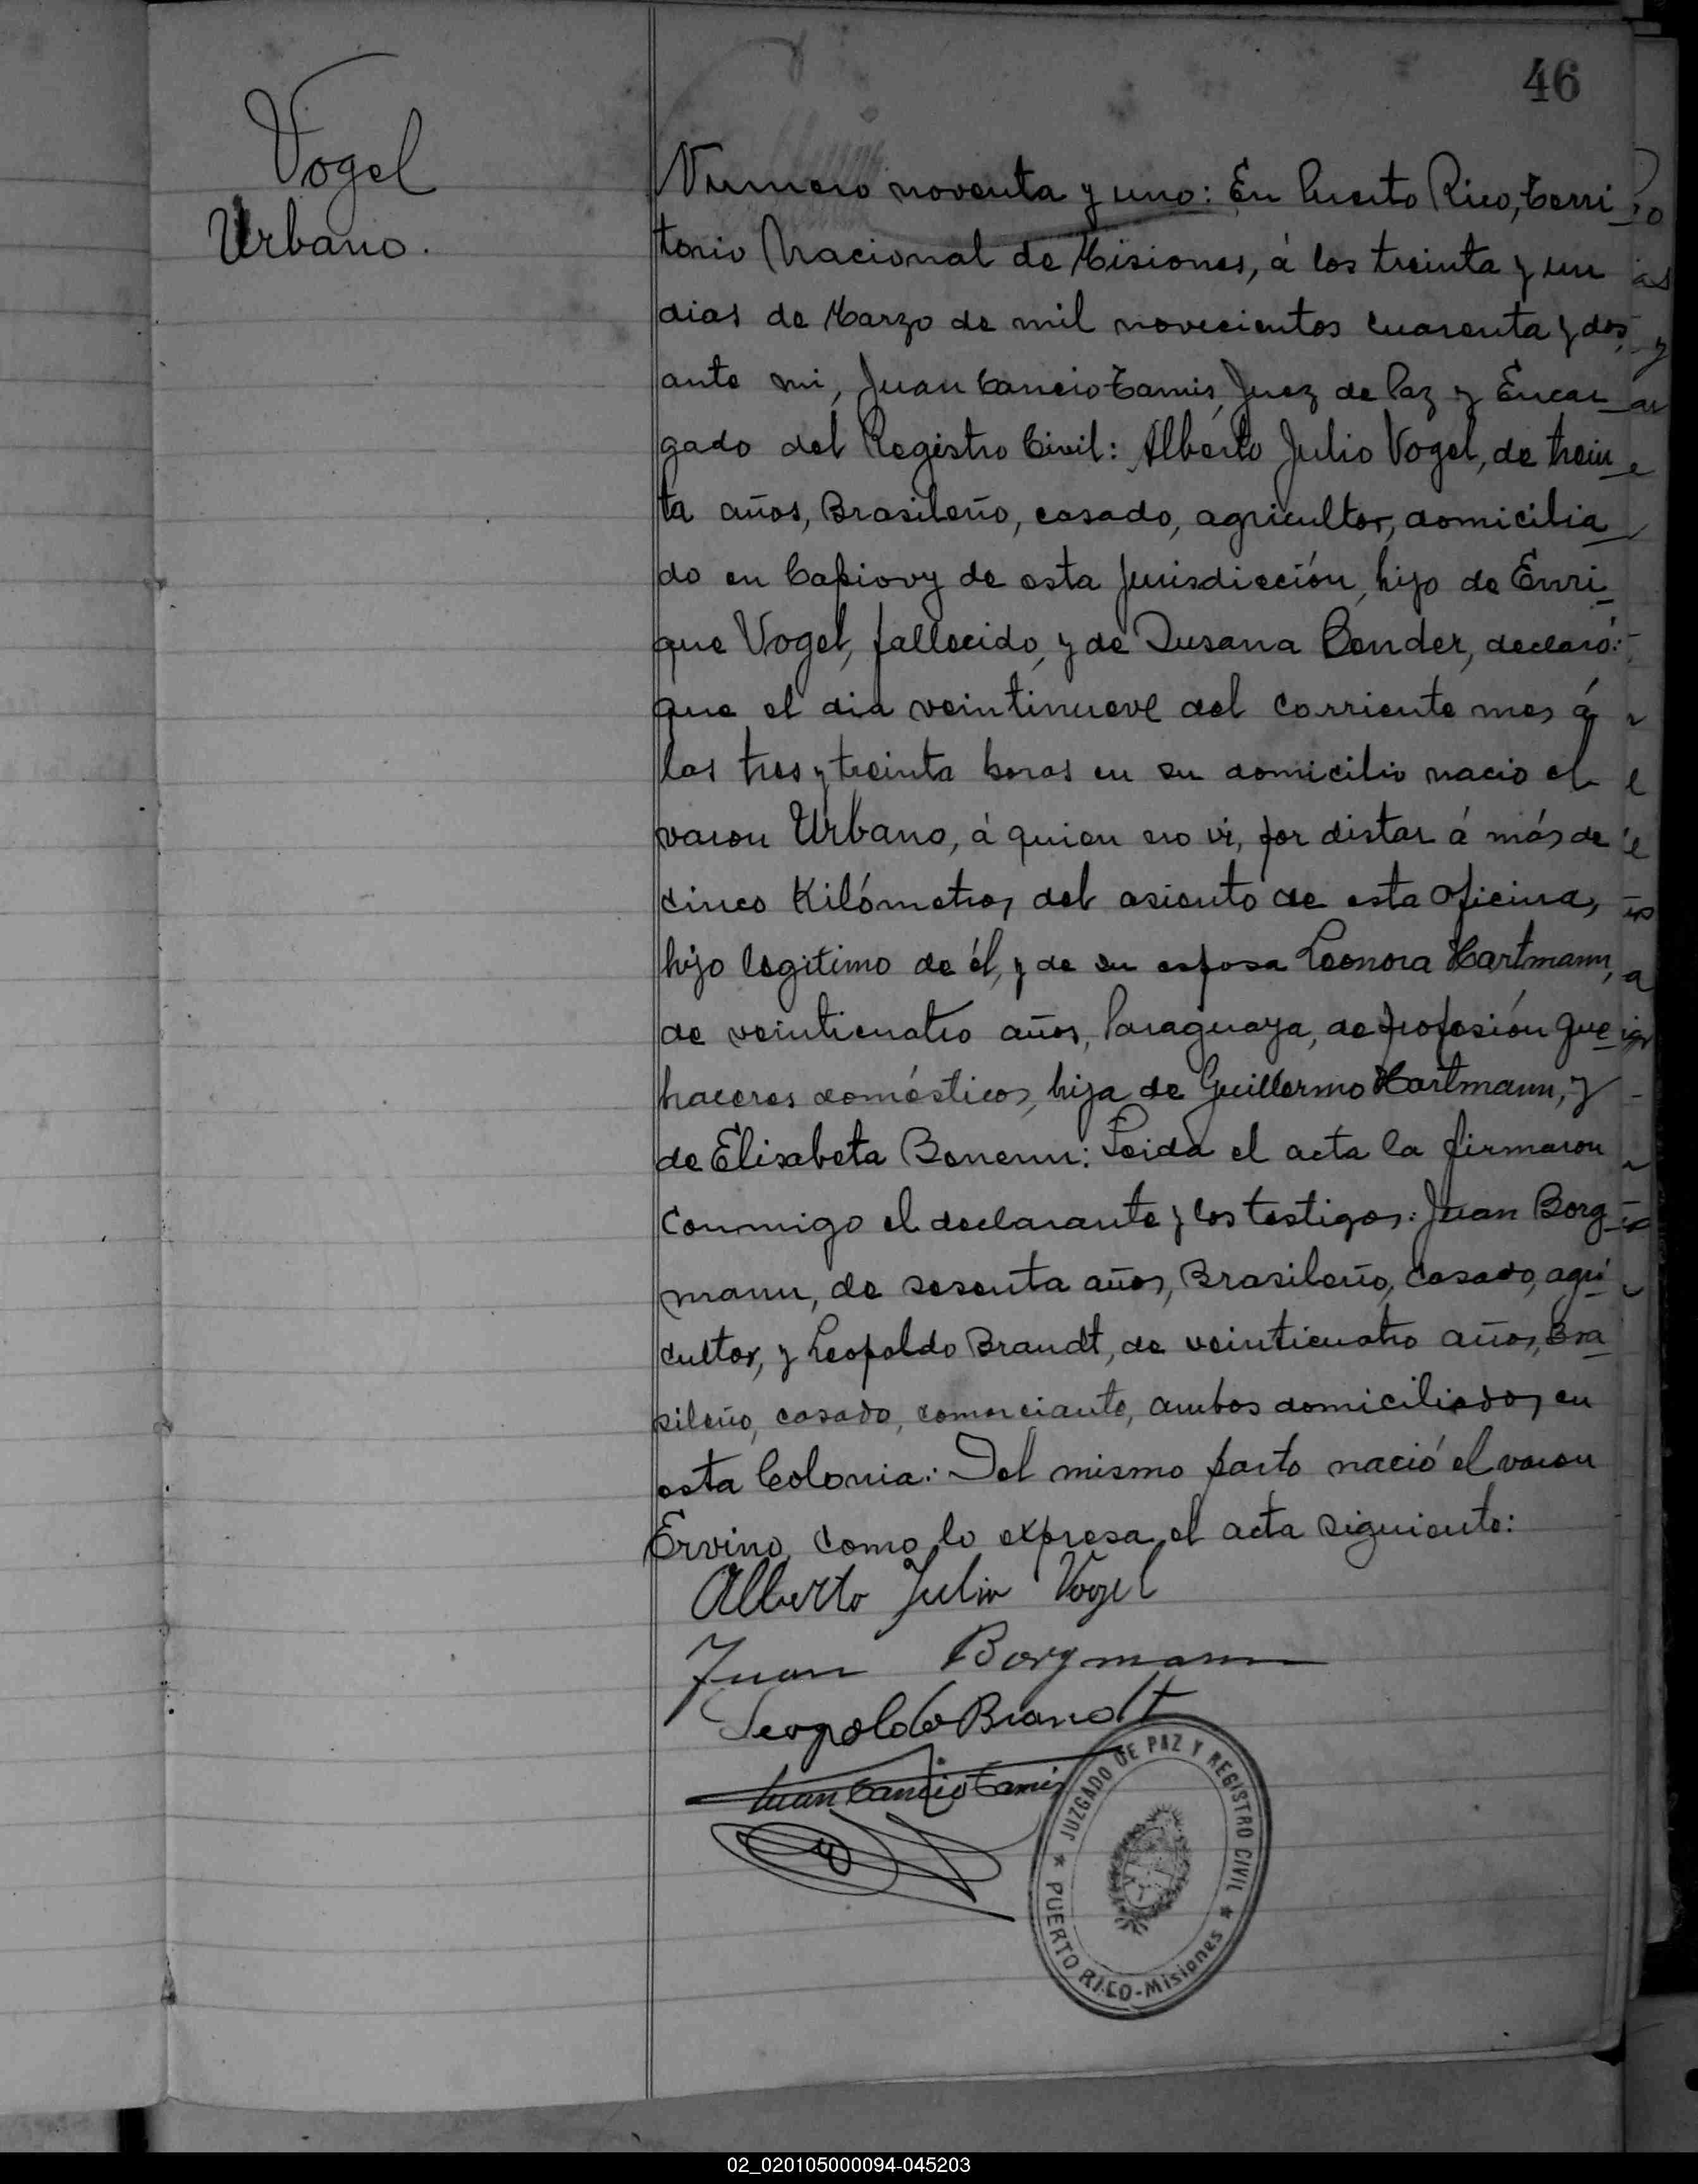 46
Vogel
Urbano.
Numero noventa y uno: En Puerto Rico, Terri
torio Nacional de Misiones, á los treinta y un
dias de Marzo de mil novecientos cuarenta y dos,
ante mi, Juan Cancio Tamis, Juez de Paz y Encar
gado del Registro Civil: Alberto Julio Vogel, de trein
ta años, Brasileño, casado, agricultor, domicilia
do en Capiovy de esta Jurisdicción, hijo de Enri
que Vogel, fallecido, y de Susana Bender, declaró:
que el dia veintinueve del corriente mes á
las tres y treinta horas en su domicilio nacio el
varon Urbano, á quien no vi, por distar á más de
cinco Kilómetros del asiento de esta Oficina,
hijo legitimo de él, y de su esposa Leonora Hartmann,
de veinticuatro años, Paraguaya, de profesión que
haceres domésticos, hija de Guillermo Hartmann, y
de Elisabeta Bonenn: Leida el acta la firmaron
conmigo el declarante y los testigos: Juan Borg
mann, de sesenta años, Brasileño, casado, agri
cultor, y Leopoldo Brandt, de veinticuatro años, Bra
sileño, casado, comerciante, ambos domiciliados en
esta Colonia: Del mismo parto nació el varon
Ervino, como lo expresa el acta siguiente:
Alberto Julio Vogel
Juan Borgmann
Leopoldo Brandt
Juan Cancio Tamis
JUZGADO DE PAZ Y REGISTRO CIVIL
PUERTO RICO-Misiones
02_020105000094-045203